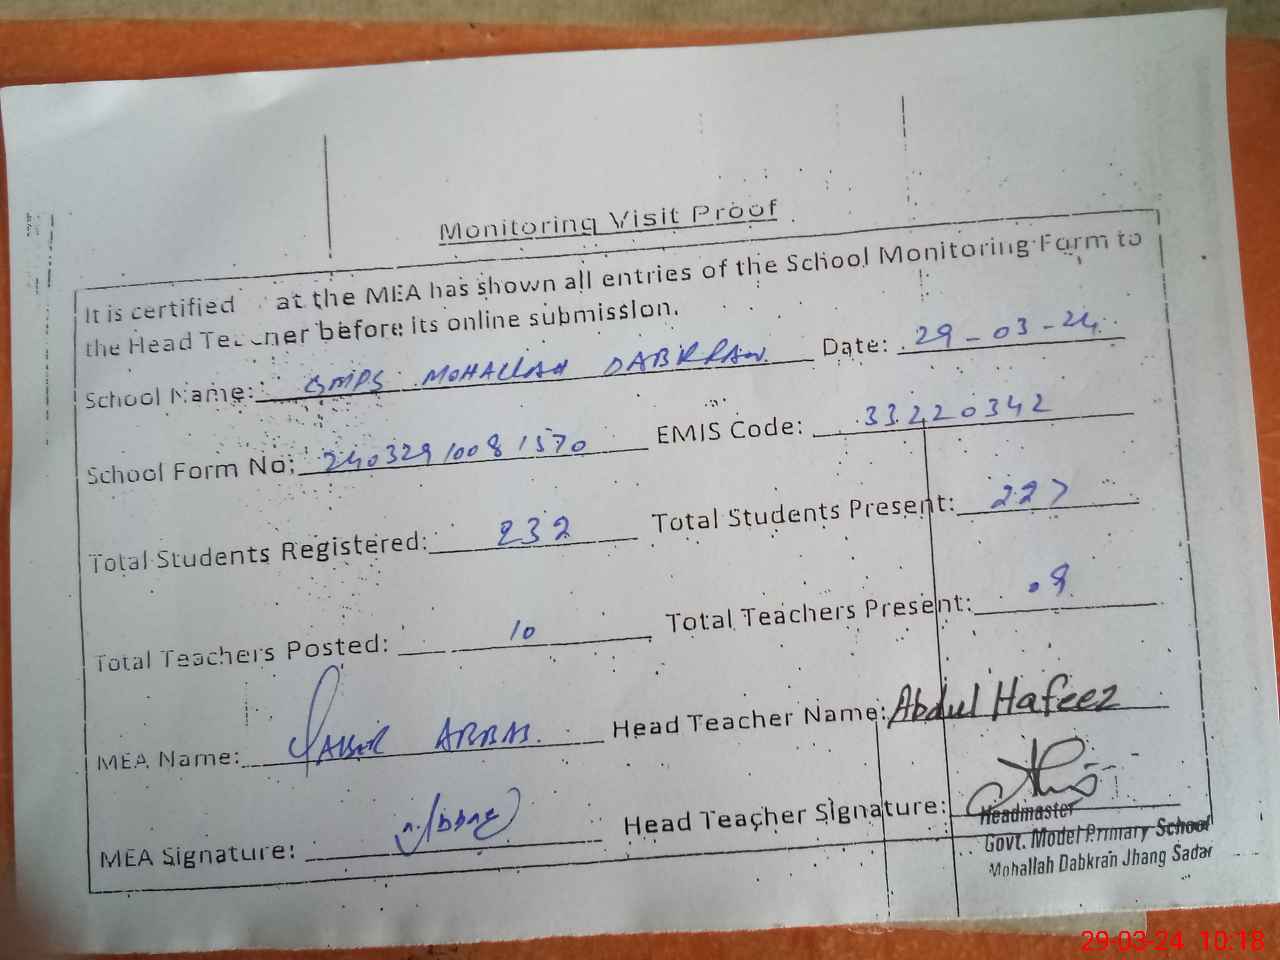 Monitoring Visit Proof
It is certified at the MEA has shown all entries of the School Monitoring Form to
the Head Teacher before its online submission.
School Name: GMPS MOHALLAH DABKRAN Date: 29-03-24
School Form No: 24032910081570 EMIS Code: 33220342
Total Students Registered: 232 Total Students Present: 227
Total Teachers Posted: 10 Total Teachers Present: 09
MEA Name: Head Teacher Name: Abdul Hafeez
MEA Signature: Head Teacher Signature:
Headmaster
Govt. Model Primary School
Mohallah Dabkran Jhang Sadar
29-03-24 10:18